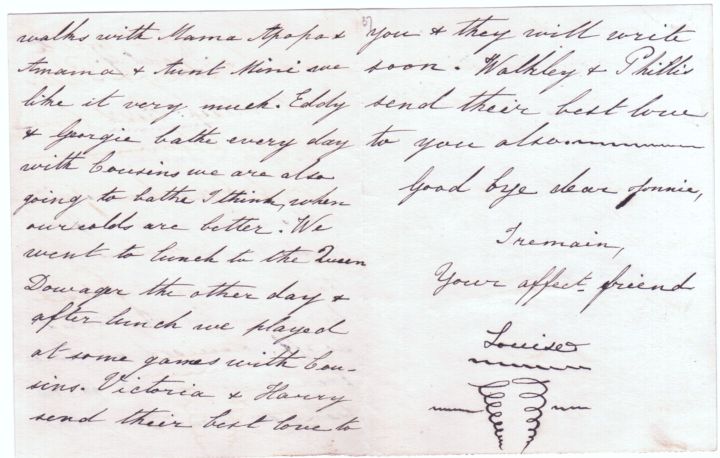 walks with Mama Apapa &
Amama & Aunt Mini we
like it very much. Eddy
& Georgie bathe every day
with Cousins we are also
going to bathe I think, when
our colds are better. We
went to lunch to the Queen
Dowager the other day &
after lunch we played
at some games with Cou-
sins. Victoria & Harry
send their best love to
you & they will write
soon. Walkley & Phillis
send their best love
to you also.
Good bye dear Onnie,
I remain,
Your affect. friend
Louise